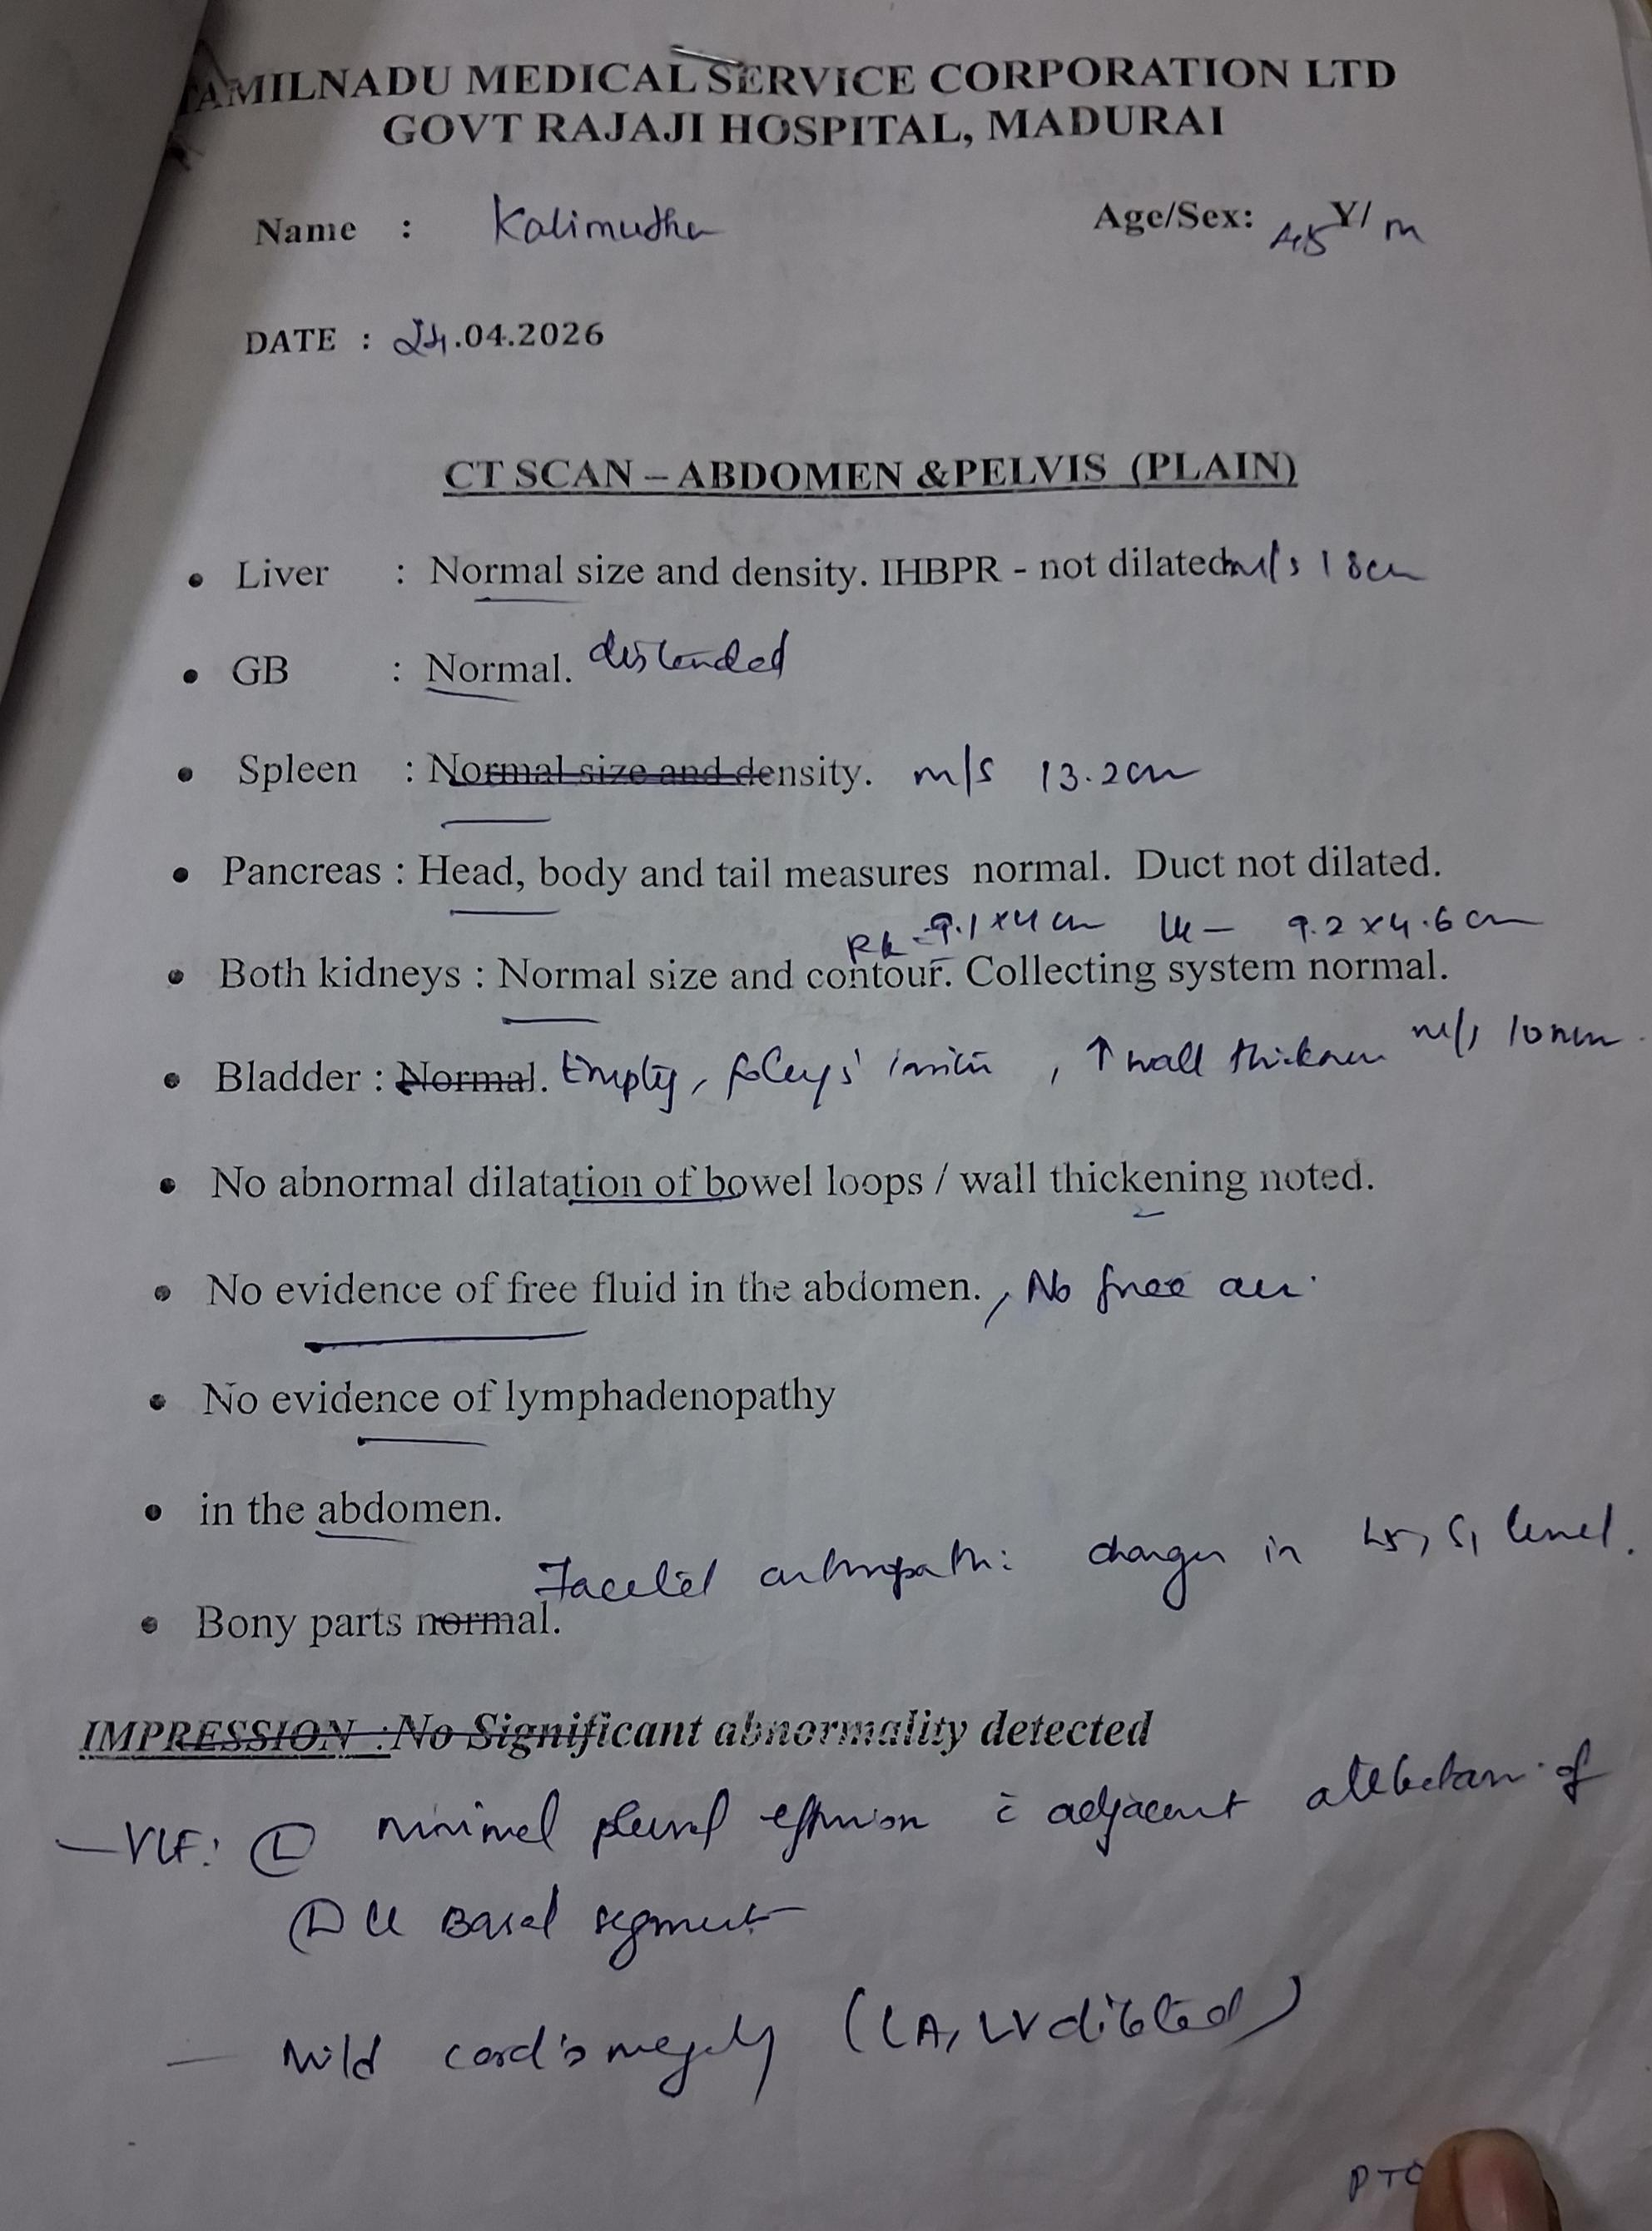 TAMILNADU MEDICAL SERVICE CORPORATION LTD
GOVT RAJAJI HOSPITAL, MADURAI
Name : Kalimuthu Age/Sex: 45 Y/ m
DATE : 24.04.2026
CT SCAN – ABDOMEN &PELVIS (PLAIN)
• Liver : Normal size and density. IHBPR - not dilated m/s 18cm
• GB : Normal. distended
• Spleen : Normal size and density. m/s 13.2cm
• Pancreas : Head, body and tail measures normal. Duct not dilated.
Rk - 9.1 x 4 cm Lk – 9.2 x 4.6 cm
• Both kidneys : Normal size and contour. Collecting system normal.
• Bladder : Normal. Empty, foleys' insitu, ↑ wall thickness m/s 10mm
• No abnormal dilatation of bowel loops / wall thickening noted.
• No evidence of free fluid in the abdomen. , No free air.
• No evidence of lymphadenopathy
• in the abdomen.
Facetal arthropathic changes in L5, S1 level.
• Bony parts normal.
IMPRESSION : No Significant abnormality detected
– VLF: (L) minimal pleural effusion c̄ adjacent atelectasis of
(L) LL Basal segment
– Mild cardiomegaly (LA, LV dilated)